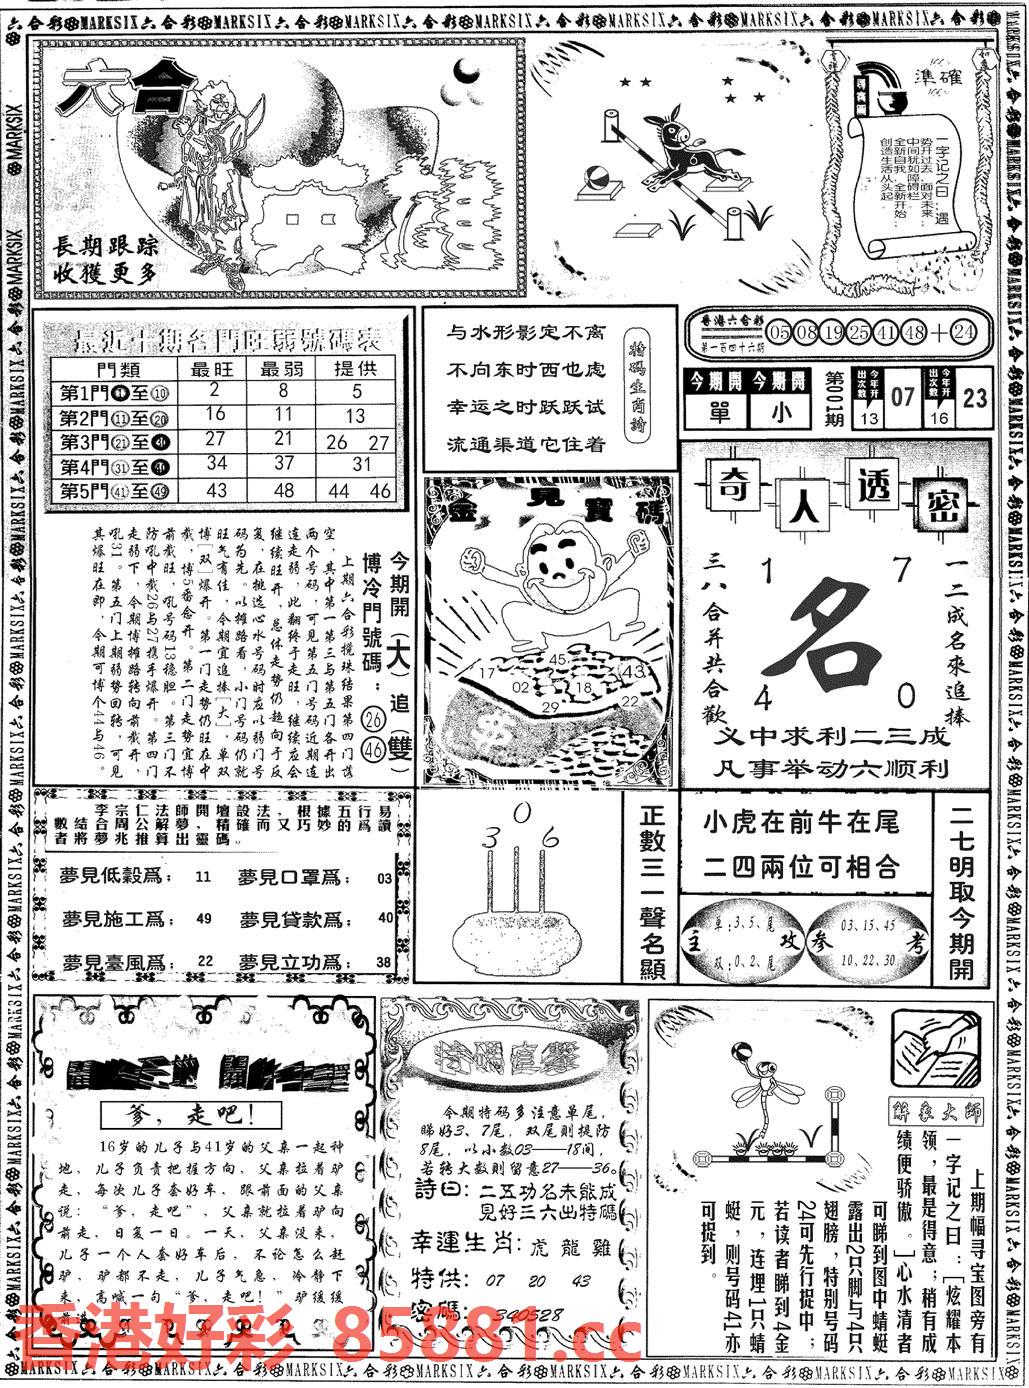 六合彩MARKSIX
六合
長期跟踪
收獲更多
準確
一字记之曰：遇
势开过去，面对未来
中间犹如障碍栏
全新自我，全新开始
创造生活从头起。
最近十期各門旺弱號碼表
門類 最旺 最弱 提供
第1門①至⑩ 2 8 5
第2門⑪至⑳ 16 11 13
第3門㉑至㉚ 27 21 26 27
第4門㉛至㊵ 34 37 31
第5門㊶至㊾ 43 48 44 46
今期開（大）追（雙）
博冷門號碼：㉖㊻
上期六合彩搅珠结果第四门落
空，其中第一第三与第五门各开出
两个号码，可见第五门号码近期连
连走弱，此翻终于走旺，继续应会
继续旺开，总体走势仍趋向于反
复，在挑选心水号码时应以弱门号
码为先。以摊路看，小门号码仍就
旺气有佳，今期宜追捧[大]，单双
博[双]爆开。第一门走势仍旺在中
截，博5番念开。第二门走势宜博
前截旺，吼号码13稳胆。第三门不
防吼中截26与27携手爆开。第四门
走弱下，今期博摊路转向前截开，
吼31。第五门上期弱势回转，可见
其爆旺在即，今期可博个44与46。
与水形影定不离
不向东时西也虑
幸运之时跃跃试
流通渠道它住着
特码生肖诗
香港六合彩
第一百四十六期
05 08 19 25 41 48 + 24
今期開 單
今期開 小
第001期
今年开出次数 13 07
今年开出次数 16 23
金見寶碼
45
17
43
02
18
29
22
奇人透密
三八合并共合歡
1 7
名
4 0
一二成名來追捧
义中求利二三成
凡事举动六顺利
李宗仁法師開壇設法，根據五行易
數結合周公解夢，精確而又巧妙的爲讀
者將夢兆推算出靈碼。
夢見低穀爲； 11 夢見口罩爲； 03
夢見施工爲； 49 夢見貸款爲； 40
夢見臺風爲； 22 夢見立功爲； 38
0
3 6
正數三一聲名顯
小虎在前牛在尾
二四兩位可相合
二七明取今期開
主攻
单:3、5、尾
双:0、2、尾
参考
03、15、45
10、22、30
爹，走吧！
16岁的儿子与41岁的父亲一起种
地，儿子负责把握方向，父亲拉着驴
走，每次儿子套好车，跟前面的父亲
说：“爹，走吧”，父亲就拉着驴向
前走，日复一日。一天，父亲没来，
儿子一个人套好车后，不论怎么赶
驴，驴都不走，儿子气急，冷静下
来，高喊一句“爹，走吧！”驴缓缓
特碼直擊
今期特码多注意单尾，
睇好3、7尾，双尾则提防
8尾，以小数03——18间，
若转大数则留意27——36。
詩曰：二五功名未能成
見好三六出特碼
幸運生肖：虎 龍 雞
特供： 07 20 43
密碼： 340528
解象大师
一字记之曰：[炫耀本
领，最是得意；稍有成
绩便骄傲。]心水清者
上期幅寻宝图旁有
可睇到图中蜻蜓
露出2只脚与4只
翅膀，特别号码
24可先行捉中；
若读者睇到4金
元，连埋1只蜻
蜓，则号码41亦
可捉到。
香港好彩 85881.cc